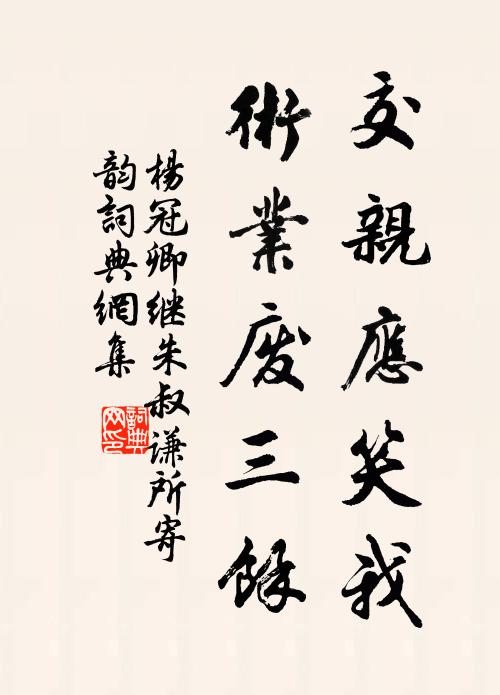 交親應笑我
術業廢三餘
楊冠卿继朱叔谦所寄
韵詞典網集
詞典
网印